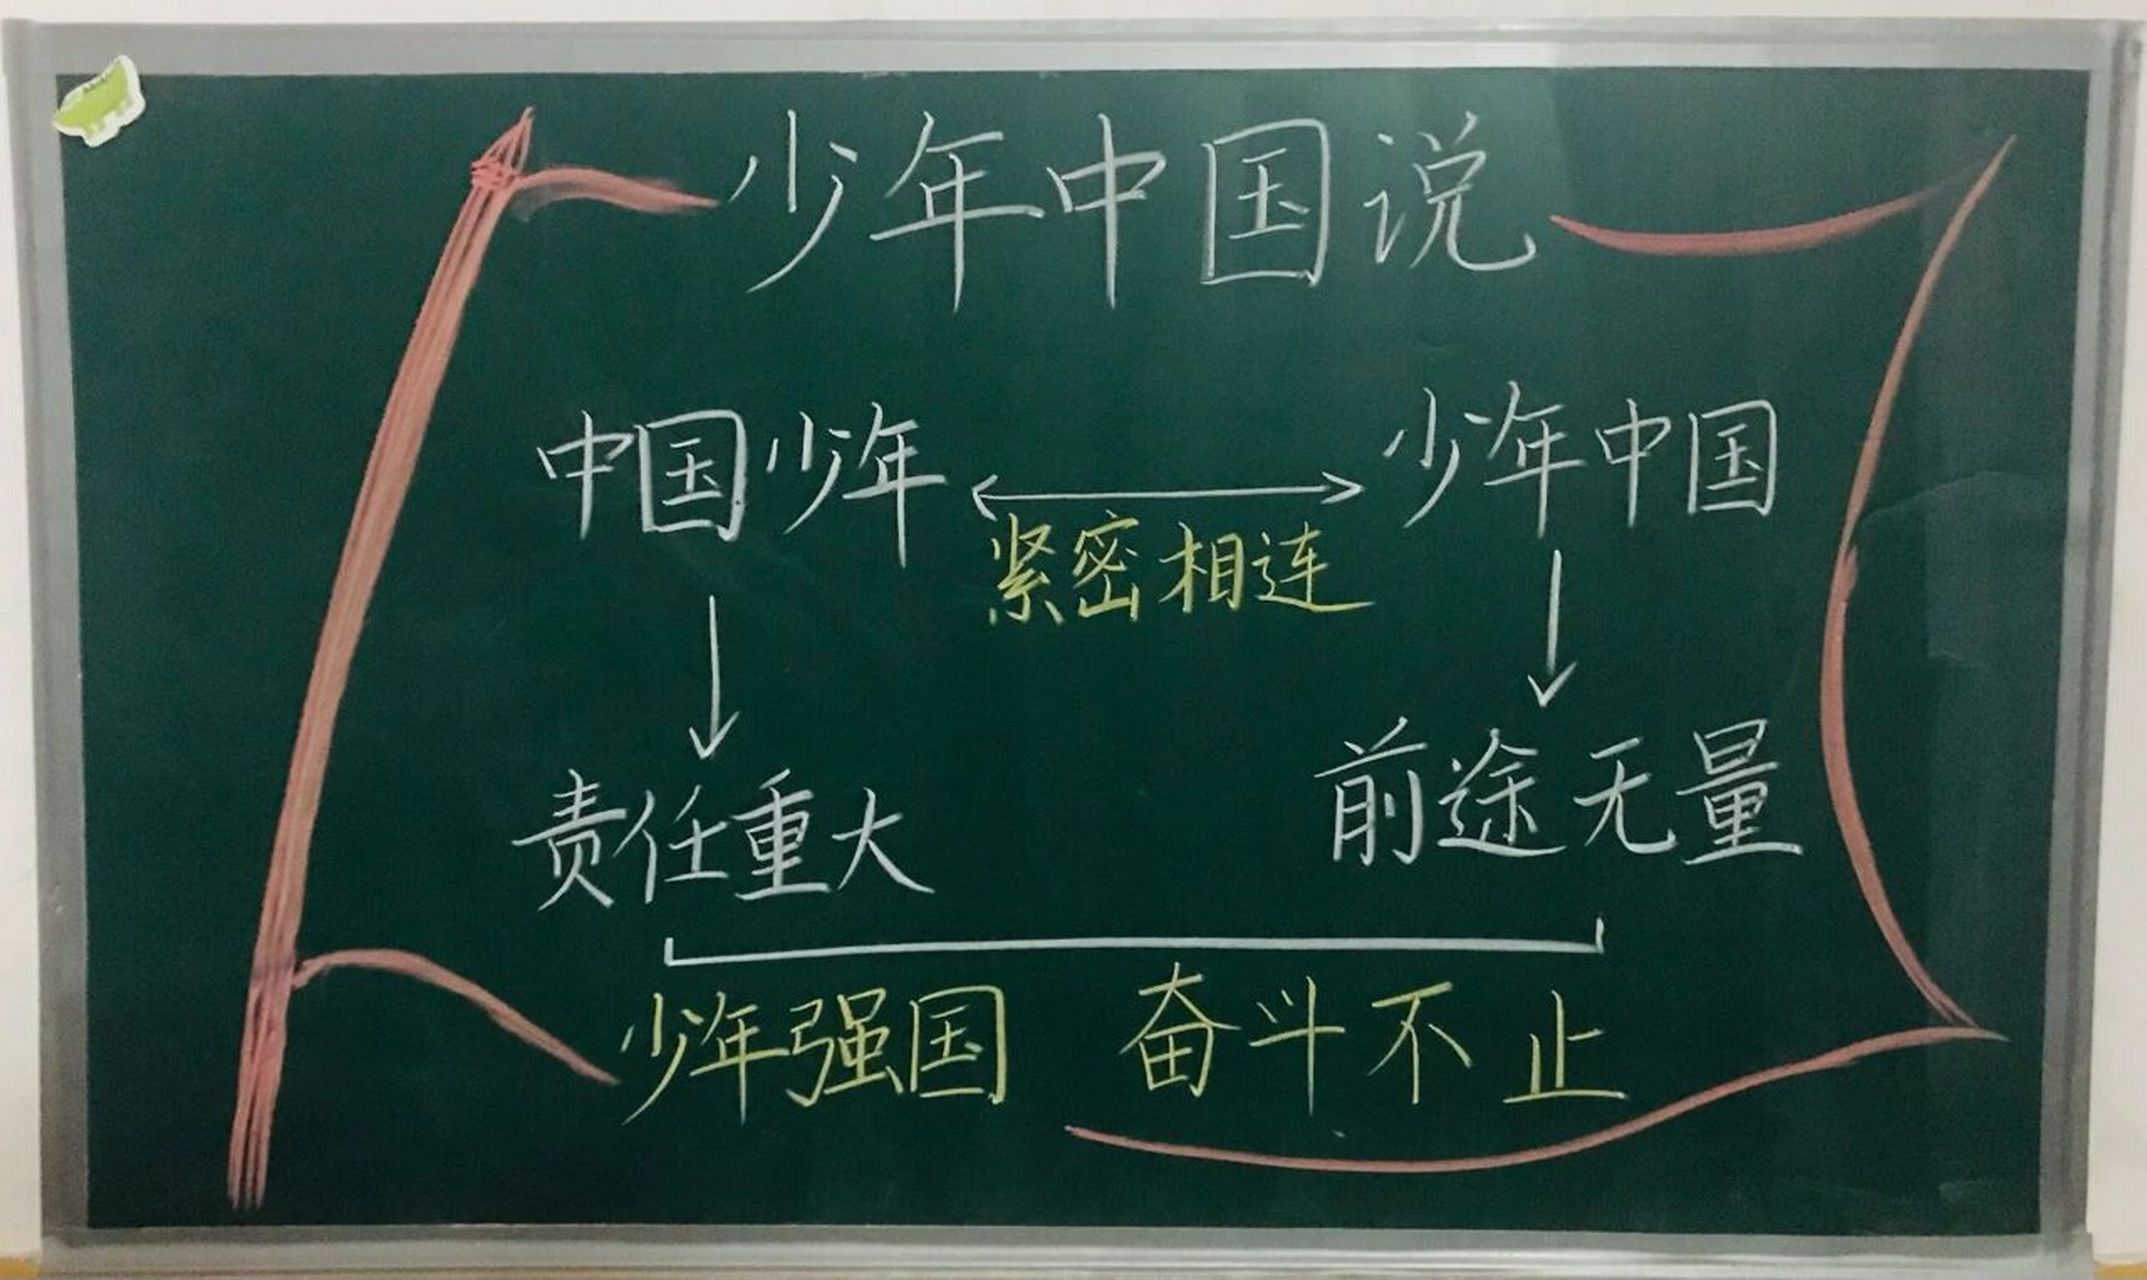 少年中国说
中国少年 少年中国
紧密相连
责任重大 前途无量
少年强国 奋斗不止